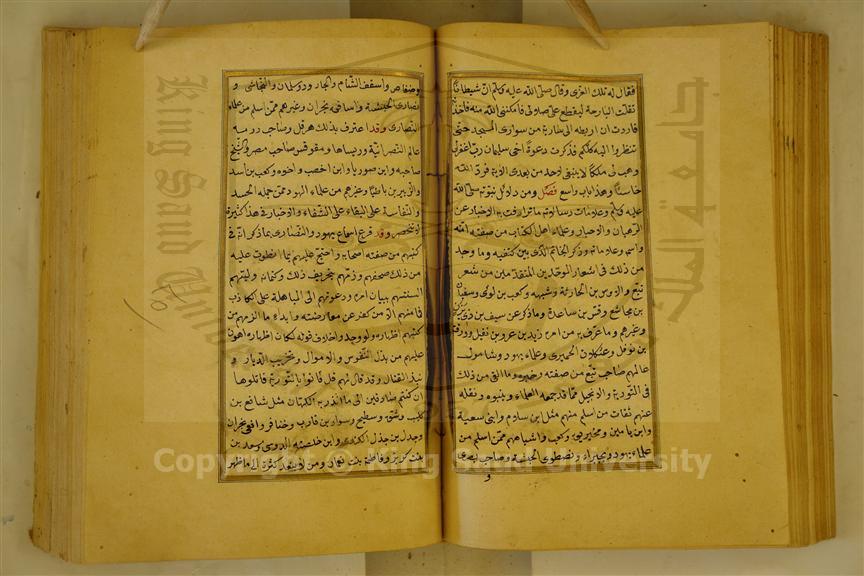 فقال له تلك العزى وقال صلى الله عليه وسلم ان شيطانا
تفلت البارحة ليقطع على صلوتى فامكننى الله منه فاخذته
فاردت ان اربطه الى سارية من سوارى المسجد حتى
تنظروا اليه كلكم فذكرت دعوة اخى سليمان رب اغفرلى
وهب لى ملكا لا ينبغى لاحد من بعدى الاية فرده الله
خاسئا وهذا باب واسع فصل ومن دلائل نبوته صلى الله
عليه وسلم وعلامات رسالته ما ترادفت به الاخبار عن
الرهبان والاحبار وعلماء اهل الكتاب من صفته
واسمه وعلاماته وذكر الخاتم الذى بين كتفيه وما وجد
من ذلك فى اشعار الموحدين المتقدمين من شعر
تبع والاوس بن حارثة وكعب بن لوى وسفيان
بن مجاشع وقس بن ساعدة وما ذكر عن سيف بن ذى يزن
وغيرهم وما عرف به من امره زيد بن عمرو بن نفيل وورقة
بن نوفل وعثكلان الحميرى وعلماء يهود وشامول
عالمهم صاحب تبع من صفته وخبره وما الفى من ذلك
فى التورية والانجيل مما قد جمعه العلماء وبينوه ونقله
عنهم ثقات من اسلم منهم مثل ابن سلام وابنى سعية
وابن يامين ومخيريق وكعب واشباههم ممن اسلم من
علماء يهود وبحيراء ونصطور الحبشة وصاحب بصرى
و
وضغاطر واسقف الشام والجارود وسلمان والنجاشى و
نصارى الحبشة واساقف نجران وغيرهم ممن اسلم من علماء
النصارى وقد اعترف بذلك هرقل وصاحب رومة
عالما النصرانية ورئيساها ومقوقس صاحب مصر والشيخ
صاحبه وابن صوريا وابن اخطب واخوه وكعب بن اسد
والزبير بن باطيا وغيرهم من علماء اليهود ممن حمله الحسد
والنفاسة على البقاء على الشقاء والاخبار فى هذا كثيرة
لا تنحصر وقد قرع اسماع يهود والنصارى بما ذكر انه فى
كتبهم من صفته وصفة اصحابه واحتج عليهم بما انطوت عليه
من ذلك صحفهم وذمهم بتحريف ذلك وكتمانه وليهم
السنتهم ببيان امره ودعوتهم الى المباهلة على الكاذب
فما منهم الا من نفر عن معارضته وابداء ما الزمهم من
كتبهم اظهاره ولو وجدوا خلاف قوله لكان اظهاره اهون
عليهم من بذل النفوس والاموال وتخريب الديار و
نبذ القتال وقد قال لهم قل فاتوا بالتورية فاتلوها
ان كنتم صادقين الى ما انذر به الكهان مثل شافع بن
كليب وشق وسطيح وسواد بن قارب وخنافر وافعى نجران
وجدل بن جذل الكندى وابن خلصة الدوسى وسعد بن
بنت كريز وفاطمة بنت نعمان ومن لا ينعد كثرة الى ما ظهر
King Saud University
جامعة الملك
Copyright © King Saud University